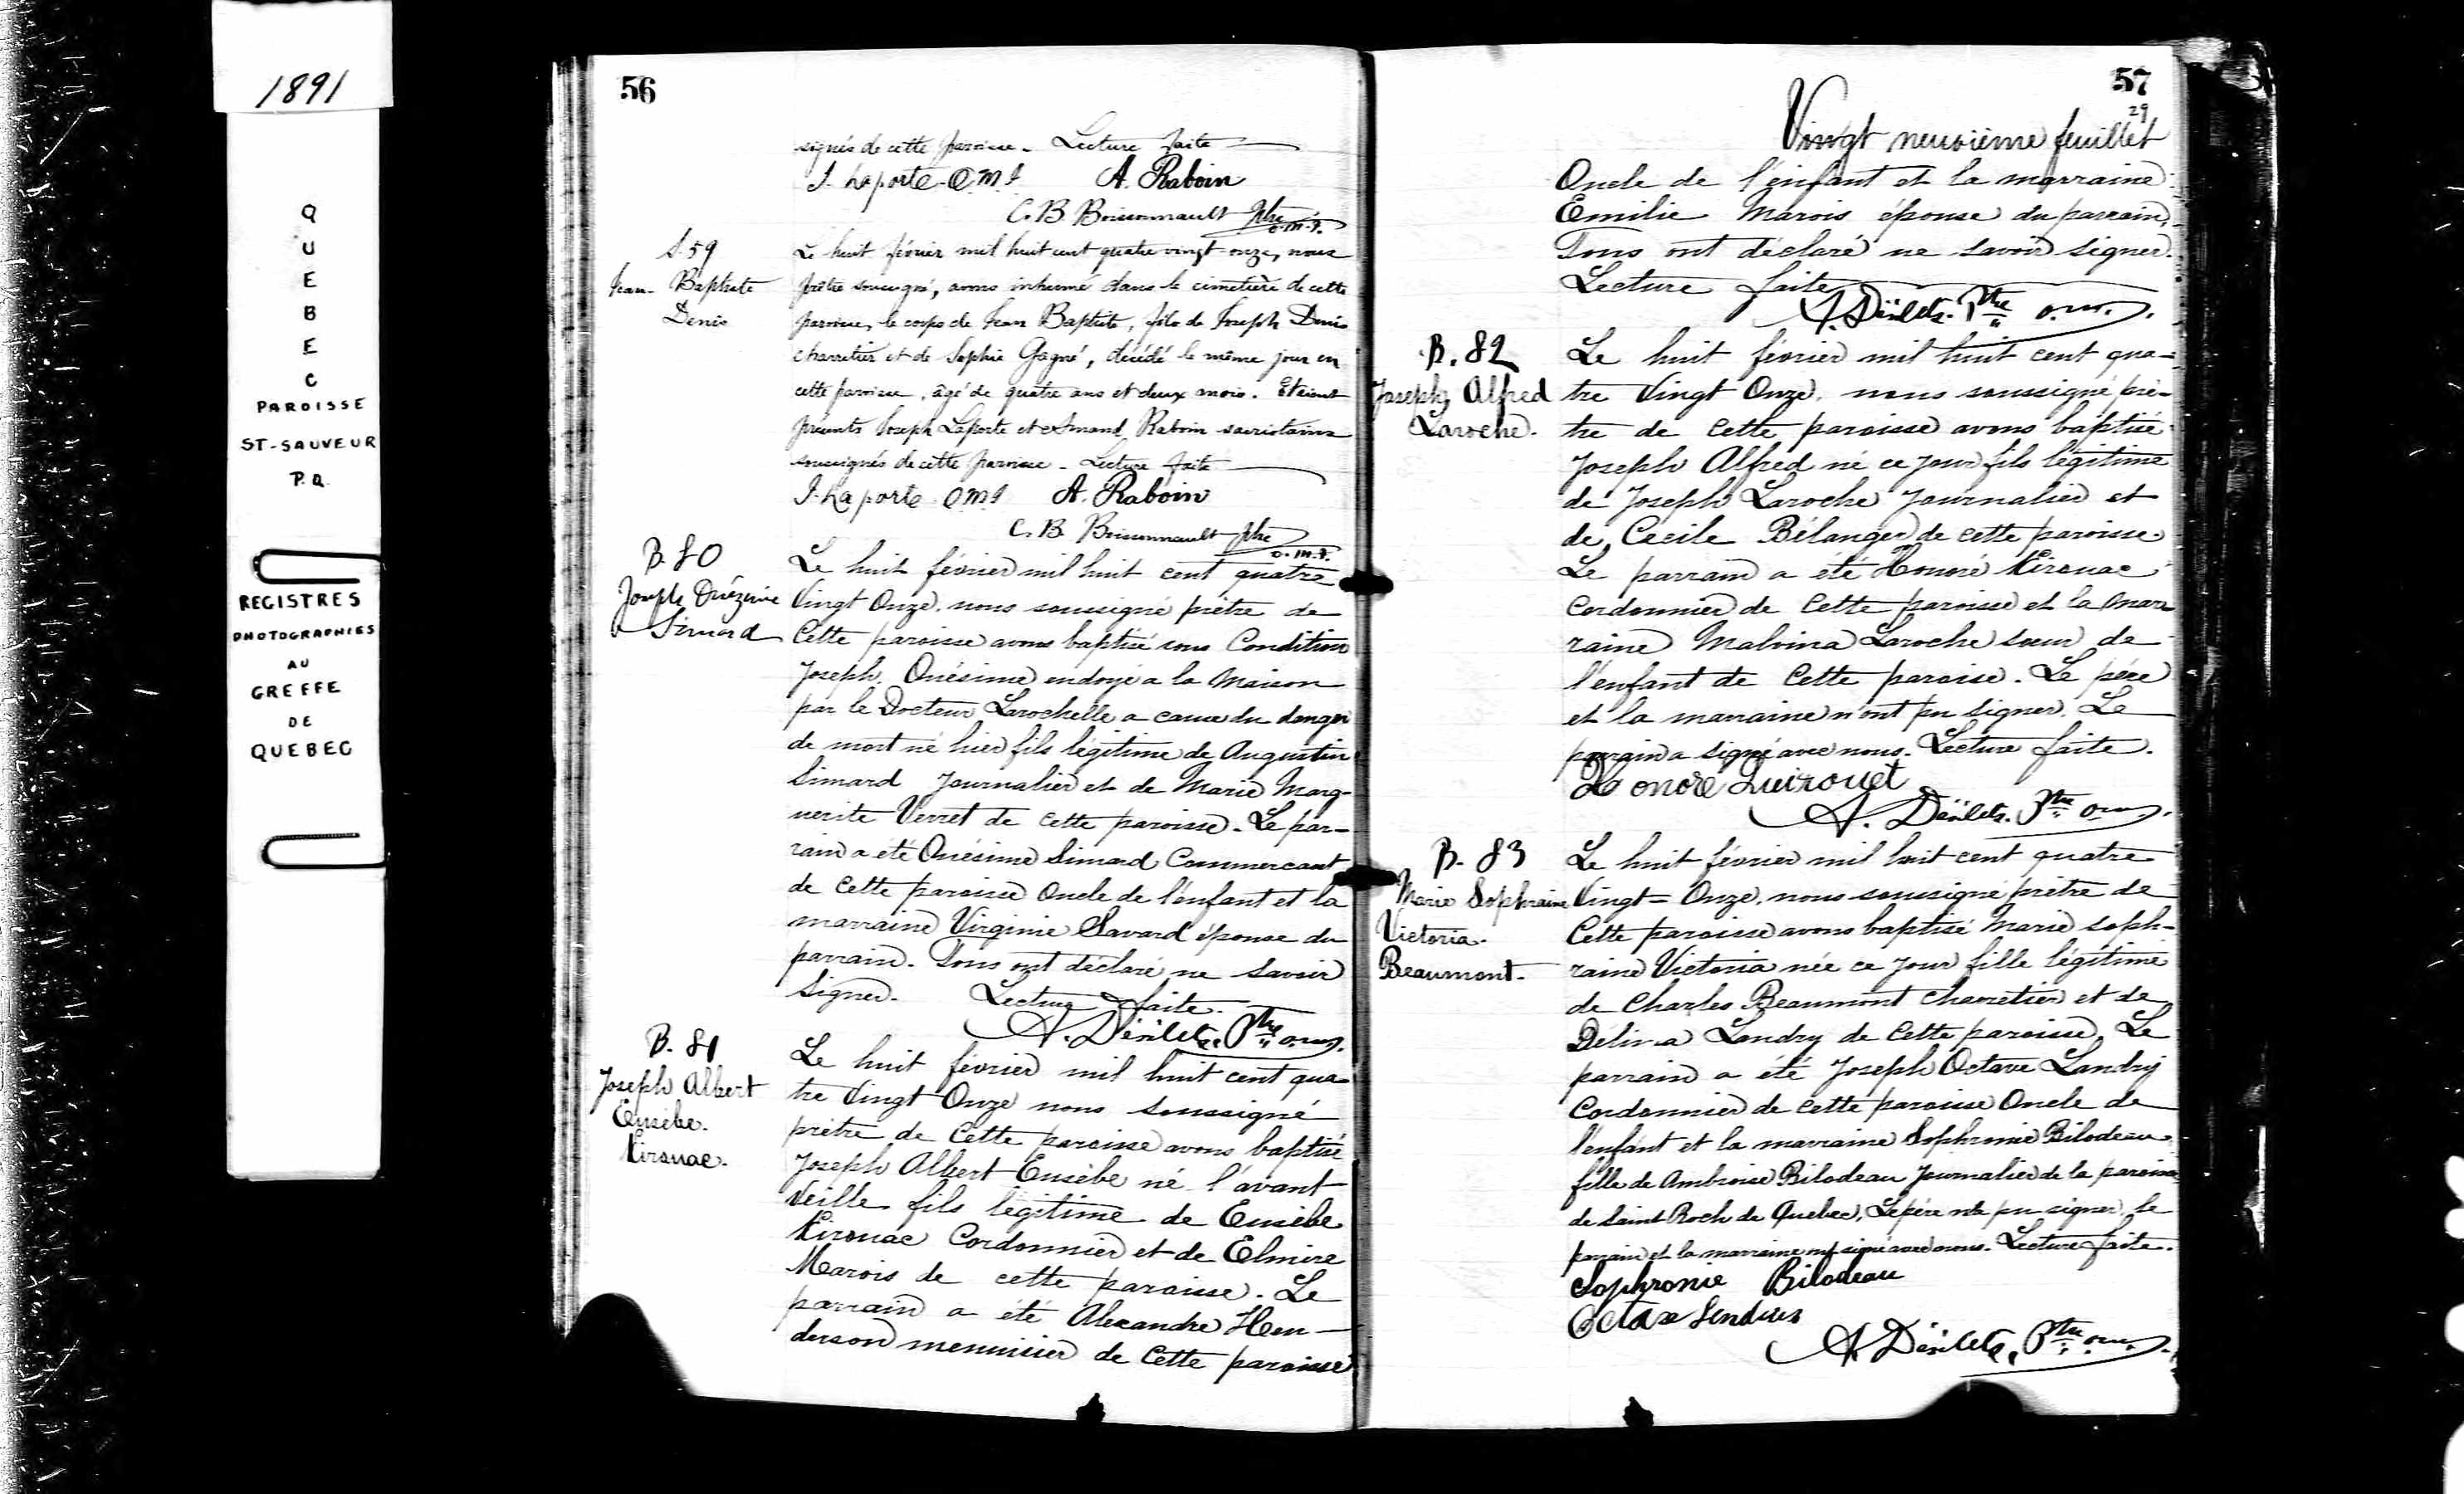 1891
QUEBEC
PAROISSE
ST-SAUVEUR
P.Q.
REGISTRES
PHOTOGRAPHIES
AU
GREFFE
DE
QUEBEC
56
signés de cette paroisse - Lecture faite
J. Laporte O.M.I. A. Raboin
C. B Boissonnault ptre
o.m.I.
S. 59
Jean-Baptiste
Denis
Le huit février mil huit cent quatre vingt-onze, nous
prêtre soussigné, avons inhumé dans le cimetière de cette
paroisse, le corps de Jean Baptiste, fils de Joseph Denis
charretier et de Sophie Gagné, décédé le même jour en
cette paroisse, âgé de quatre ans et deux mois. Etaient
présents Joseph Laporte et Amand Raboin sacristains
soussignés de cette paroisse - Lecture faite
J. Laporte O.M.I. A. Raboin
C. B. Boissonnault ptre
o.m.I.
B. 80
Joseph Onézime
Simard
Le huit février mil huit cent quatre
Vingt Onze, nous soussigné prêtre de
Cette paroisse avons baptisé sous Condition
Joseph Onésime ondoyé a la Maison
par le Docteur Larochelle a cause du danger
de mort né hier fils légitime de Augustin
Simard Journalier et de Marie Marg-
uerite Verret de cette paroisse. Le par-
rain a été Onésime Simard Commercant
de Cette paroisse Oncle de l'enfant et la
marraine Virginie Savard épouse du
parrain. Tous ont déclaré ne Savoir
Signer. Lecture faite.
A. Désilets. Ptre o.m.i.
B. 81
Joseph Albert
Eusèbe.
Kirouac.
Le huit février mil huit cent qua-
tre Vingt Onze nous soussigné
prêtre de Cette paroisse avons baptisé
Joseph Albert Eusèbe né l'avant
Veille fils légitime de Eusèbe
Kirouac Cordonnier et de Elmire
Marois de cette paroisse. Le
parrain a été Alexandre Hen-
derson menuisier de Cette paroisse
57
29
Vingt neuvième feuillet
Oncle de l'enfant et la marraine
Emilie Marois épouse du parrain,
Tous ont déclaré ne savoir signer.
Lecture faite
A. Désilets. Ptre o.m.i.
B. 82
Joseph Alfred
Laroche.
Le huit février mil huit cent qua-
tre Vingt Onze, nous soussigné prê-
tre de Cette paroisse avons baptisé
Joseph Alfred né ce jour fils légitime
de Joseph Laroche Journalier et
de Cecile Bélanger de cette paroisse.
Le parrain a été Honoré Kirouac
Cordonnier de Cette paroisse et la mar-
raine Malvina Laroche sœur de
l'enfant de Cette paroise. Le père
et la marraine n'ont pu signer. Le
parrain a signé avec nous. Lecture faite.
Honoré Quirouet
A. Désilets. Ptre o.m.i.
B. 83
Marie Sophraine
Victoria.
Beaumont.
Le huit février mil huit cent quatre
Vingt = Onze, nous soussigné prêtre de
Cette paroisse avons baptisé Marie soph-
raine Victoria née ce jour fille légitime
de Charles Beaumont charretier et de
Délina Landry de Cette paroisse. Le
parrain a été Joseph Octave Landry
Cordonnier de Cette paroisse Oncle de
l'enfant et la marraine Sophronie Bilodeau
fille de Ambroise Bilodeau Journalier de la paroisse
de Saint Roch de Quebec. Le père n'a pu signer, le
parrain et la marraine ont signé avec nous. Lecture faite.
Sophronie Bilodeau
A. Désilets. Ptre o.m.i.